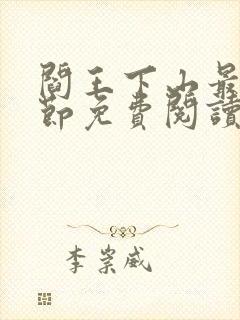 閻王下山最
節免費閱讀
李崇威